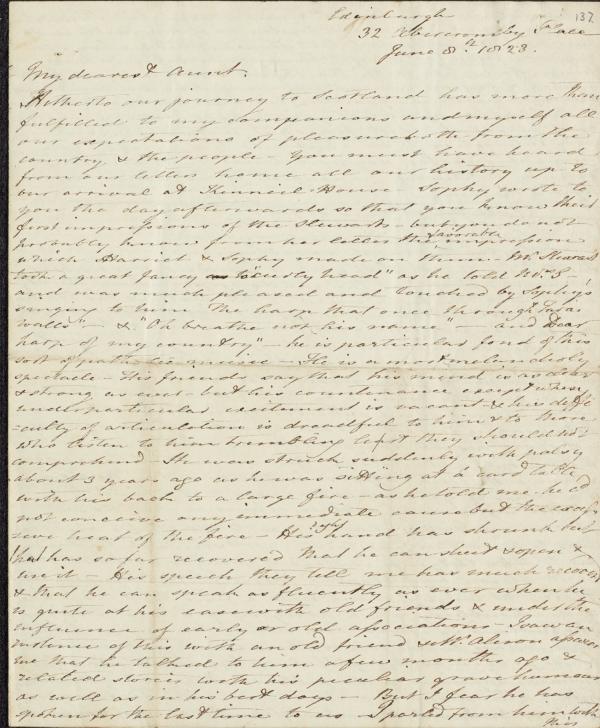 137.
Edinburgh
32 Abercromby Place
June 8th. 1823.
My dearest Aunt
Hitherto our journey to Scotland has more than
fulfilled to my companions and myself all
our expectations of pleasure both from the
country & the people – You must have heard
from our letters home all our history up to
our arrival at Kinneil-House – Sophy wrote to
you the day afterwards so that you know their
first impressions of the Stewarts – but you do not
probably know from her letter the favorable impression
which Harriet & Sophy made on them – Mr. Stewart
took a great fancy to "curly head" as he told Mrs. S –
and was much pleased and touched by Sophy's
singing to him "The harp that once through Taras
walls" – & "Oh breathe not his name" – and "Dear
harp of my country" – he is particular fond of this
sort of pathetic music – He is a most melancholy
spectacle – His friends say that his mind is as clear
& strong as ever – but his countenance except when
under particular excitement is vacant – & his diffi
-culty of articulation is dreadful to him & to those
who listen to him trembling lest they should not
comprehend He was struck suddenly with palsy
about 3 years ago as he was sitting at a card table
with his back to a large fire – as he told me. he cd
not conceive any immediate cause but the exces
sive heat of the fire – His right hand has shrunk but
has so far recovered that he can shut & open &
use it – His speech they tell me has much recovered
& that he can speak as fluently as ever when he
is quite at his ease with old friends & under the
influence of early or old associations – I saw an
instance of this with an old friend & Mr. Alison assured
me that he talked to him a few months ago &
related stories with his peculiar grave humour
as well as in his best days – But I fear he has
spoken for the last time to us – I parted from him with
this